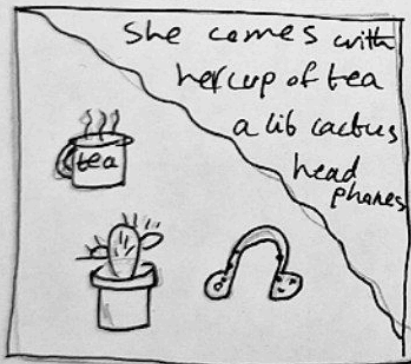 She comes with
her cup of tea
a lib cactus
head
phones
tea